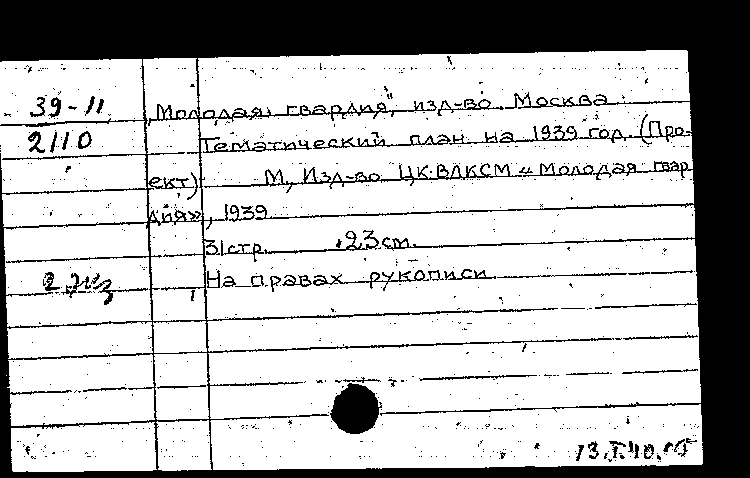 39-11
2110
„Молодая гвардия", изд-во. Москва
Тематический план на 1939 год. (Про-
ект) М., Изд-во ЦК ВЛКСМ „Молодая гвар
дия», 1939
31стр. 23 cm.
На правах рукописи
2 экз
13.I.40.